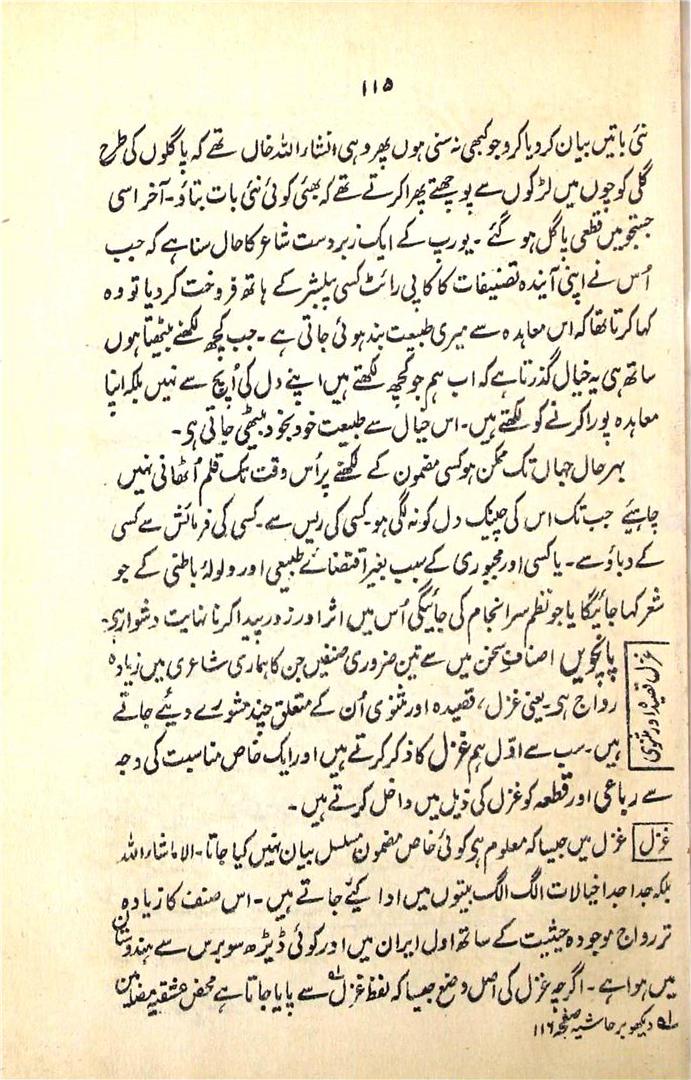 ۱۱۵
نئی باتیں بیان کر دیا کرو جو کبھی نہ سنی ہوں پھر وہی انشاء اللہ خاں تھے کہ پاگلوں کی طرح
گلی کوچوں میں لڑکوں سے پوچھتے پھرا کرتے تھے کہ بھئی کوئی نئی بات بتاؤ۔ آخر اسی
جستجو میں قطعی پاگل ہو گئے۔ یورپ کے ایک زبردست شاعر کا حال سنا ہے کہ جب
اُس نے اپنی آیندہ تصنیفات کا کاپی رائٹ کسی پبلشر کے ہاتھ فروخت کر دیا تو وہ
کہا کرتا تھا کہ اس معاہدہ سے میری طبیعت بند ہوئی جاتی ہے۔ جب کچھ لکھنے بیٹھتا ہوں
ساتھ ہی یہ خیال گذرتا ہے کہ اب ہم جو کچھ لکھتے ہیں اپنے دل کی اُپج سے نہیں بلکہ اپنا
معاہدہ پورا کرنے کو لکھتے ہیں۔ اس خیال سے طبیعت خود بخود بیٹھی جاتی ہی۔
بہر حال جہاں تک ممکن ہو کسی مضمون کے لکھنے پر اُس وقت تک قلم اُٹھانی نہیں
چاہیئے جب تک اس کی چپٹک دل کو نہ لگی ہو۔ کسی کی ریس سے۔ کسی کی فرمائش سے کسی
کے دباؤ سے۔ یا کسی اور مجبوری کے سبب بغیر اقتضائے طبیعی اور ولولۂ باطنی کے جو
شعر کہا جائیگا یا جو نظم سر انجام کی جائیگی اُس میں اثر اور زور پیدا کرنا نہایت دشوار ہی۔
غزل قصیدہ اور مثنوی
پانچویں اصناف سخن میں سے تین ضروری صنفیں جن کا ہماری شاعری میں زیادہ
رواج ہی۔ یعنی غزل، قصیدہ اور مثنوی اُن کے متعلق چند مشورے دیئے جاتے
ہیں۔ سب سے اوّل ہم غزل کا ذکر کرتے ہیں اور ایک خاص مناسبت کی وجہ
سے رباعی اور قطعہ کو غزل کی ذیل میں داخل کرتے ہیں۔
غزل غزل میں جیسا کہ معلوم ہی کوئی خاص مضمون مسلسل بیان نہیں کیا جاتا۔ الا ماشاء اللہ
بلکہ جدا جدا خیالات الگ الگ بیتوں میں ادا کیے جاتے ہیں۔ اس صنف کا زیادہ
تر رواج موجودہ حیثیت کے ساتھ اول ایران میں اور کوئی ڈیڑھ سو برس سے ہندوستان
میں ہوا ہے۔ اگرچہ غزل کی اصل وضع جیسا کہ لفظ غزل۱؎ سے پایا جاتا ہے محض عشقیہ مضامین
۱؎ دیکھو بر حاشیہ صفحہ ۱۱۶